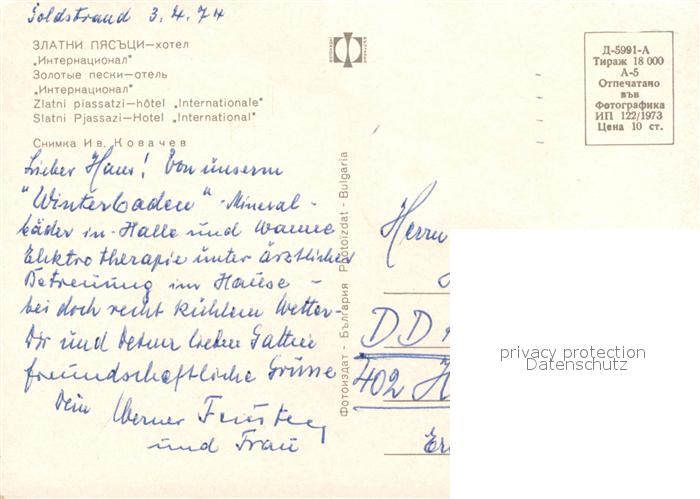 Goldstrand 3.4.74
ЗЛАТНИ ПЯСЪЦИ—хотел
„Интернационал"
Золотые пески—отель
„Интернационал"
Zlatni piassatzi—hôtel „Internationale"
Slatni Pjassazi—Hotel „International"
Снимка Ив. Ковачев
Lieber Hans! Von unserm
"Winterbaden" - Mineral-
bäder in Halle und Wanne
Elektrotherapie unter ärztlicher
Betreuung im Hause -
bei doch recht kühlem Wetter -
Dir und Deiner lieben Gattin
freundschaftliche Grüsse
Dein Werner
und Frau
Фотоиздат - България Photoizdat - Bulgaria
Д-5991-А
Тираж 18 000
А-5
Отпечатано
във
Фотографика
ИП 122/1973
Цена 10 ст.
Herrn
DD
402 H
privacy protection
Datenschutz